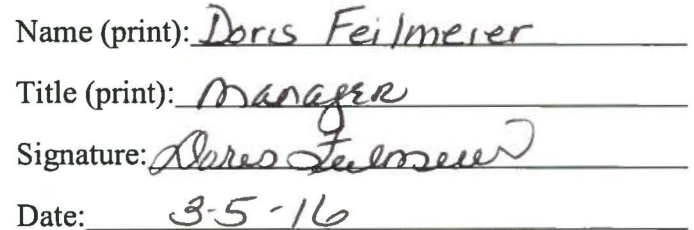 Name (print): Doris Feilmeier
Title (print): Manager
Signature: Doris Feilmeier
Date: 3-5-16